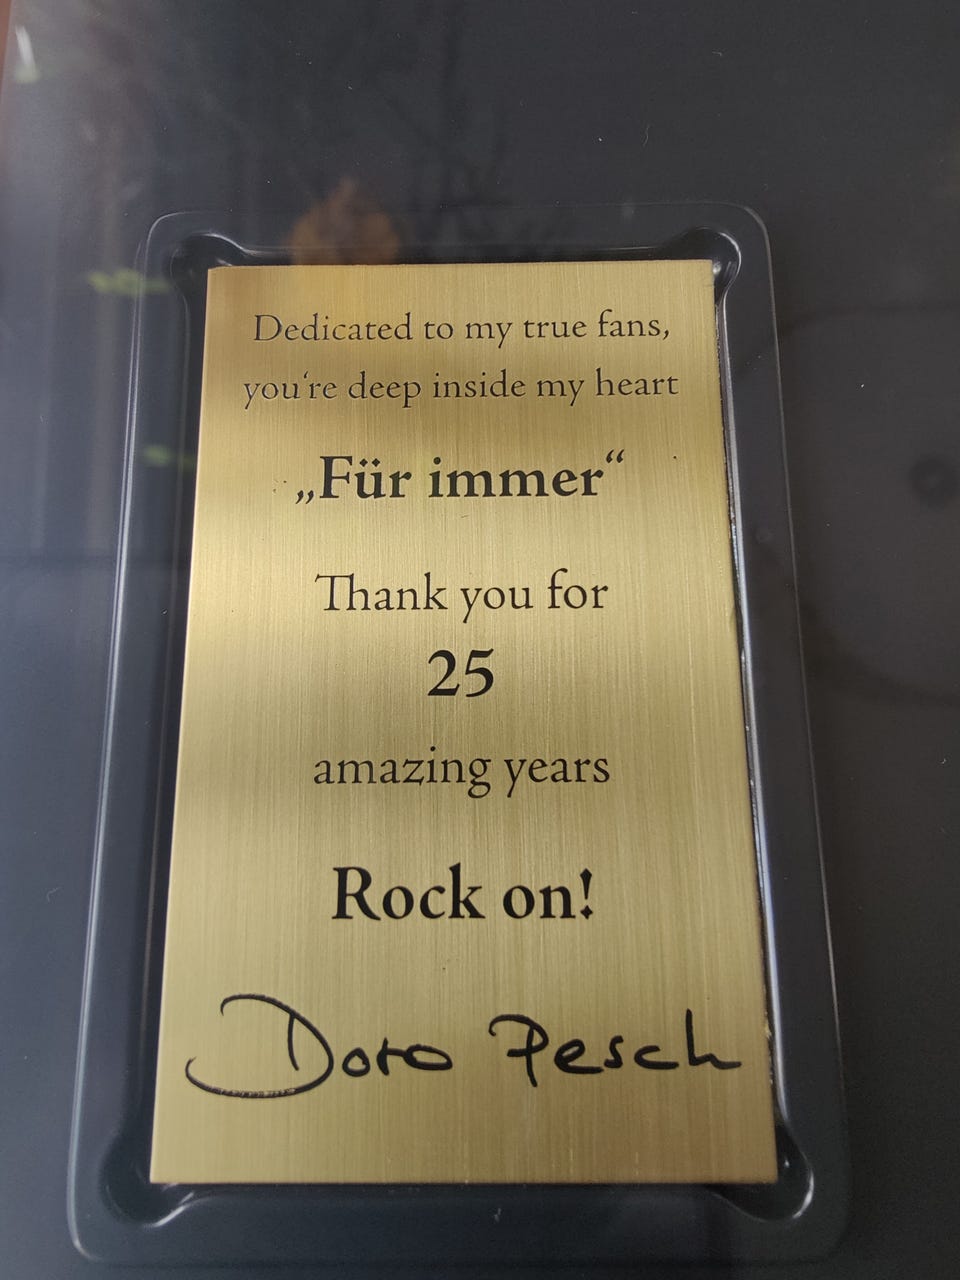 Dedicated to my true fans,
you‘re deep inside my heart
„Für immer“
Thank you for
25
amazing years
Rock on!
Doro Pesch